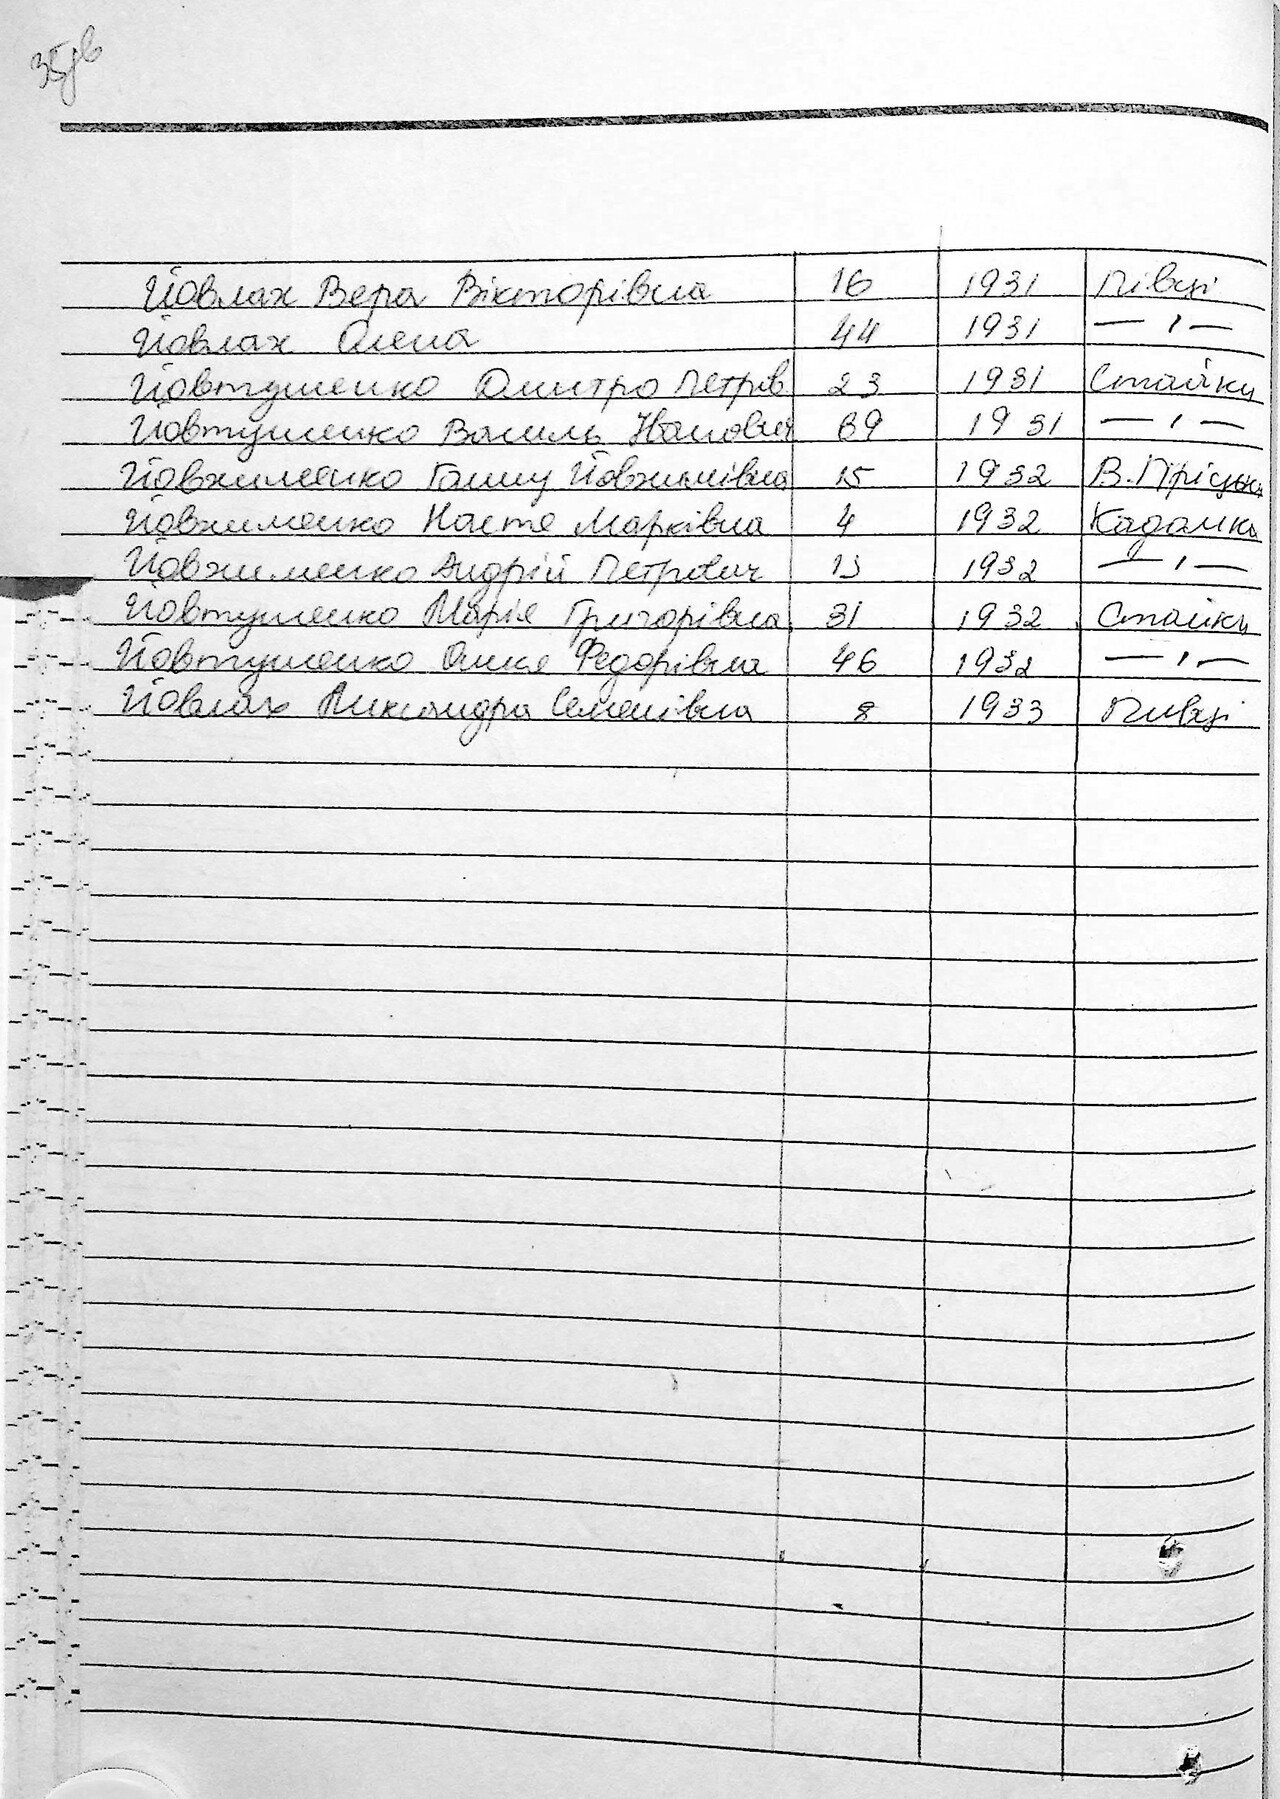 35зв
Йовлах Вера Вікторівна 16 1931 Півці
Йовлах Олена 44 1931 — " —
Йовтушенко Дмитро Петров. 23 1931 Стайки
Йовтушенко Василь Іванович 69 1931 — " —
Йовхименко Ганну Йовхимівна 15 1932 В.Пріцьки
Йовхименко Настя Марківна 4 1932 Кадомка
Йовхименко Андрій Петрович 13 1932 — " —
Йовтушенко Марія Григорівна 31 1932 Стайки
Йовтушенко Олжя Федорівна 46 1932 — " —
Йовлах Александра Семенівна 8 1933 Пивці